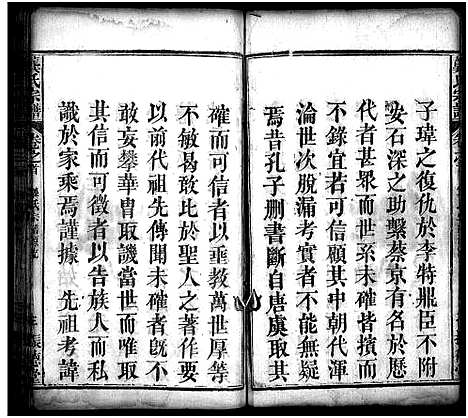 子瑋之復仇於李特鼎臣不附
安石深之助繫蔡京有名於歷
代此類甚多而世系未確皆擯而
不錄宜若可信顧其中朝代渾
淪世次脫漏考實者不能無疑
焉昔孔子刪書斷自唐虞取其
確而可據者以垂教萬世厚等
不敏曷敢比於聖人之刪而要
以前代祖先傳聞未確者既不
敢妄攀華胄取譏當世而唯取
其信而可徵者以告族人而共
識於家乘焉謹據 先祖考諱
吳氏宗譜
卷之首